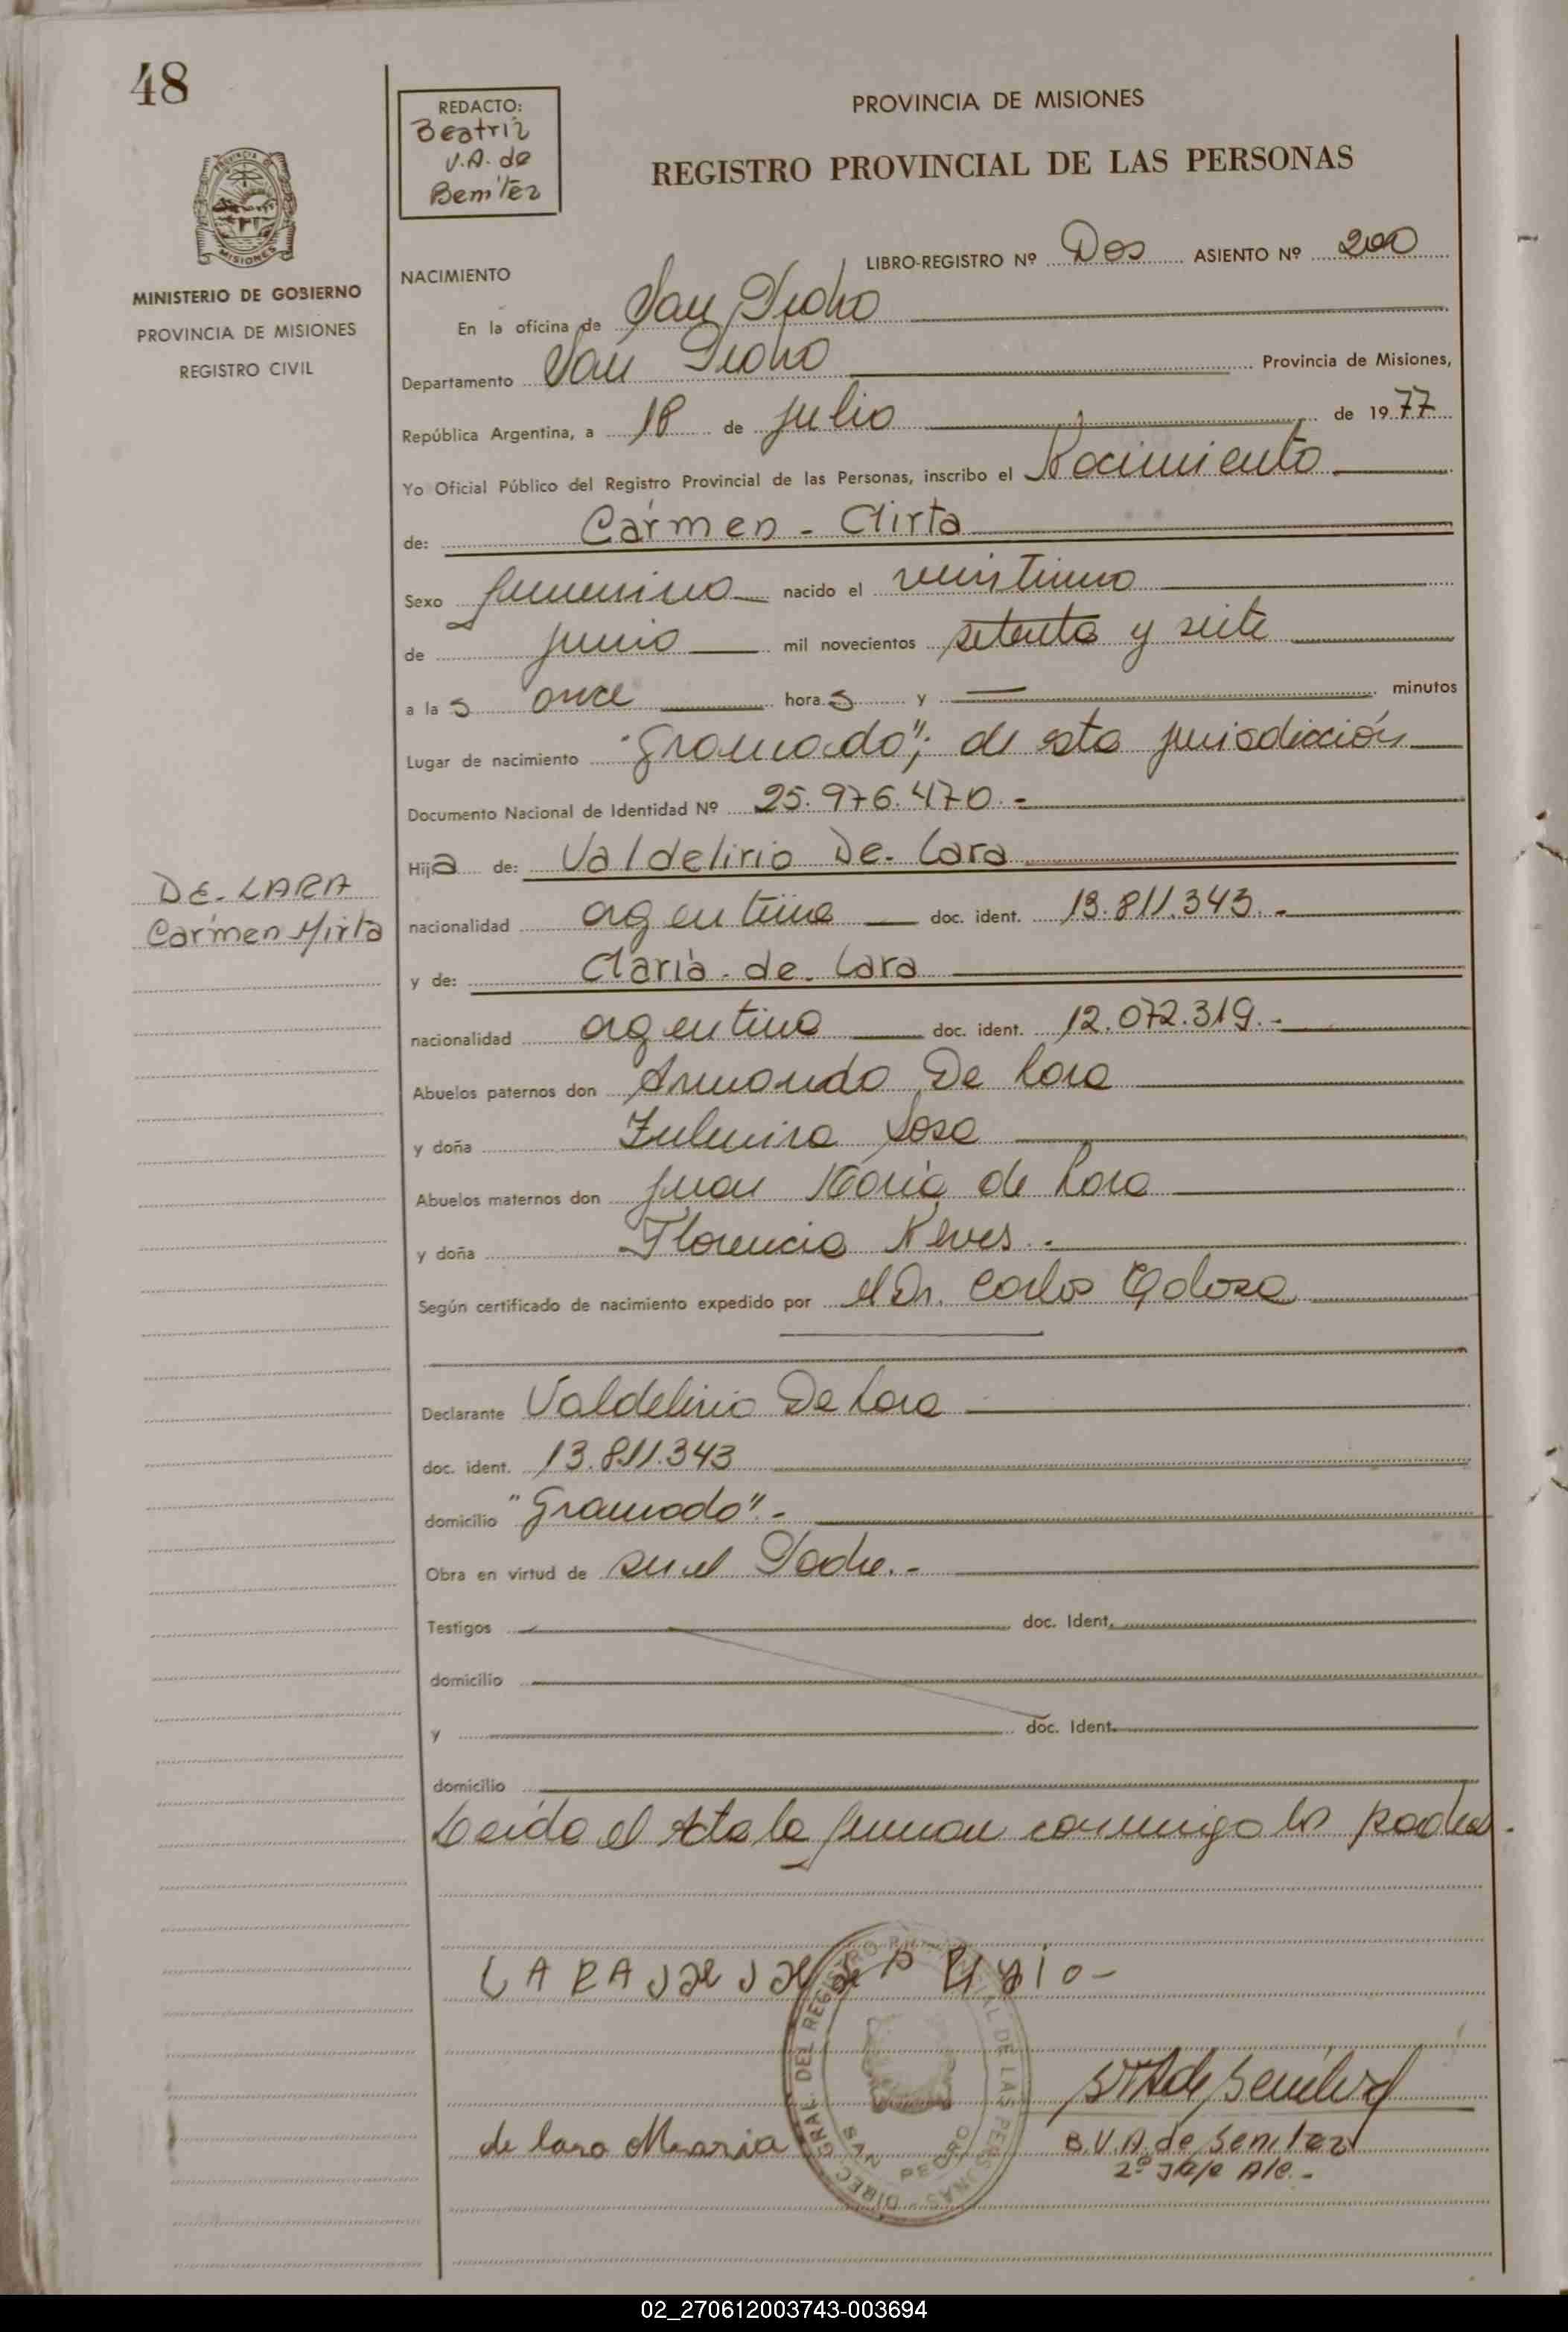 48
REDACTO:
Beatriz
V.A. de
Benitez
PROVINCIA DE MISIONES
REGISTRO PROVINCIAL DE LAS PERSONAS
MISIONES
MINISTERIO DE GOBIERNO
PROVINCIA DE MISIONES
REGISTRO CIVIL
LIBRO-REGISTRO Nº Dos ASIENTO Nº 200
NACIMIENTO
En la oficina de San Pedro
Departamento San Pedro Provincia de Misiones,
República Argentina, a 18 de julio de 1977
Yo Oficial Público del Registro Provincial de las Personas, inscribo el Nacimiento
de: Cármen - Mirta
Sexo femenino nacido el veintiuno
de junio mil novecientos setenta y siete
a las once horas y — minutos
Lugar de nacimiento "Gramado"; de esta jurisdicción
Documento Nacional de Identidad Nº 25.976.470.-
Hija de: Valdelirio De- Lara
DE- LARA
Cármen Mirta
nacionalidad argentina doc. ident. 13.811.343.-
y de: María - de - Lara
nacionalidad argentina doc. ident. 12.072.319.-
Abuelos paternos don Armando De Lara
y doña Zulmira Sosa
Abuelos maternos don Juan María de Lara
y doña Florencia Neves.-
Según certificado de nacimiento expedido por el Dr. Carlos
Declarante Valdelirio De Lara
doc. ident. 13.811.343
domicilio "Gramado".-
Obra en virtud de ser el Padre.-
Testigos doc. Ident.
domicilio
y doc. Ident.
domicilio
Leída el Acta la firman conmigo los padres.
LARA
de lara Maria
B.V.A. de Benitez
2º Jefe A/c.-
DIREC. GRAL. DEL REGISTRO PROVINCIAL DE LAS PERSONAS
02_270612003743-003694